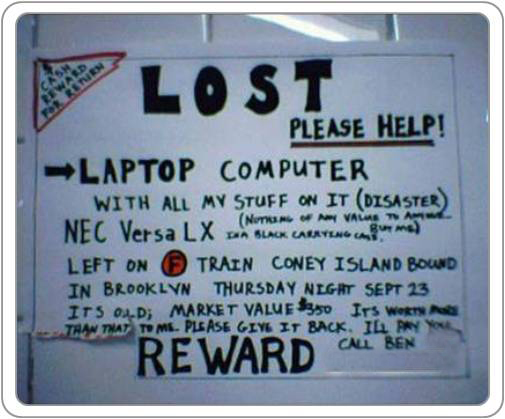 $ CASH
REWARD
FOR RETURN
LOST
PLEASE HELP!
→LAPTOP COMPUTER
WITH ALL MY STUFF ON IT (DISASTER)
(NOTHING OF ANY VALUE TO ANYONE
BUT ME)
NEC Versa LX IN A BLACK CARRYING CASE.
LEFT ON F TRAIN CONEY ISLAND BOUND
IN BROOKLYN THURSDAY NIGHT SEPT 23
ITS OLD; MARKET VALUE $350 ITS WORTH MORE
THAN THAT TO ME. PLEASE GIVE IT BACK. I'LL PAY YOU
REWARD CALL BEN